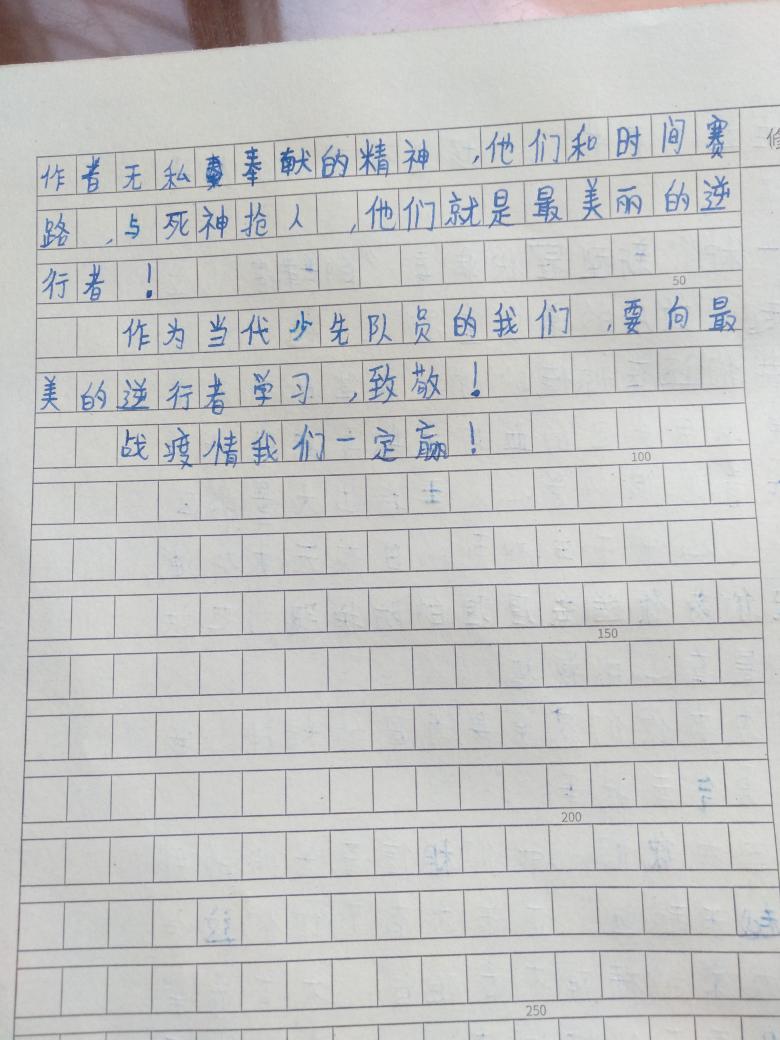 作者无私奉献的精神，他们和时间赛
路，与死神抢人，他们就是最美丽的逆
行者！
50
作为当代少先队员的我们，要向最
美的逆行者学习，致敬！
战疫情我们一定赢！
100
150
200
250